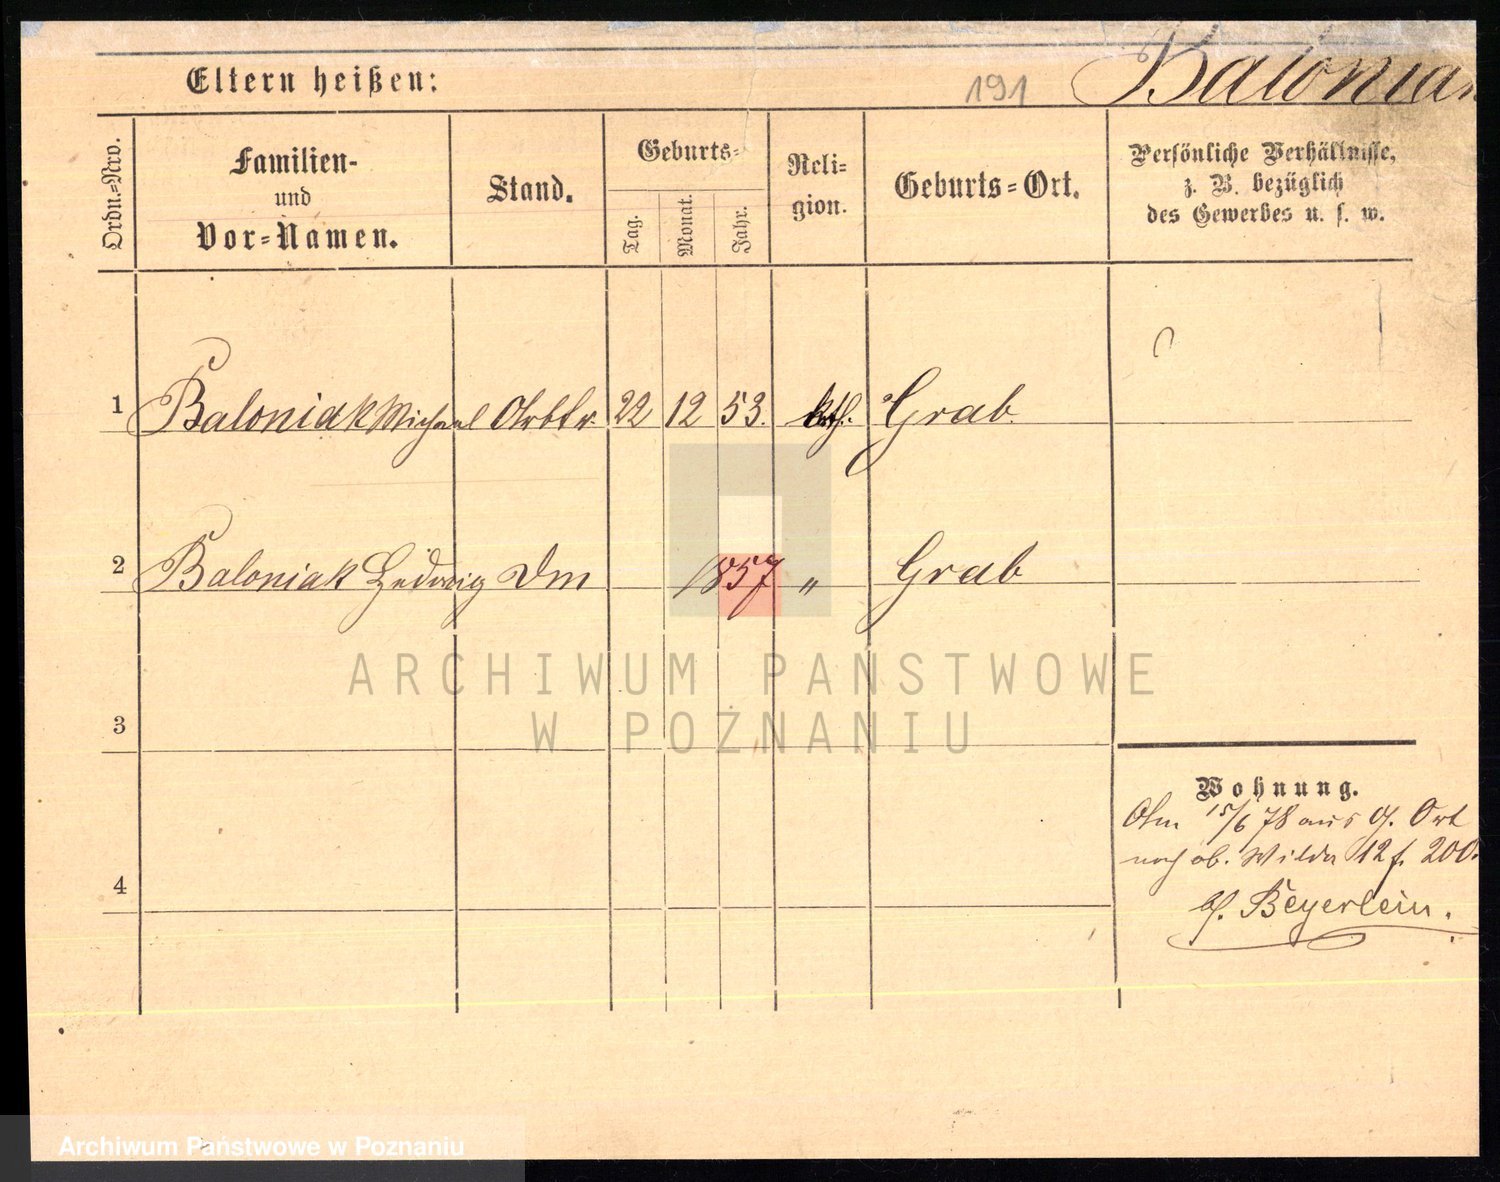 Eltern heißen: 191 Balonia
Ordn.=Nro. Familien- und Vor=Namen. Stand. Geburts= Tag. Monat. Jahr. Reli= gion. Geburts=Ort. Persönliche Verhältnisse, z. B. bezüglich des Gewerbes u. s. w.
1 Baloniak Michael Arbtr. 22 12 53. kth. Grab.
2 Baloniak Hedwig Dm 1857 " Grab
ARCHIWUM PAŃSTWOWE
W POZNANIU
3
Wohnung.
Am 15/6 78 aus g. Ort
nach ob. Wilda 12 f. 200.
4
Beyerlein.
Archiwum Państwowe w Poznaniu